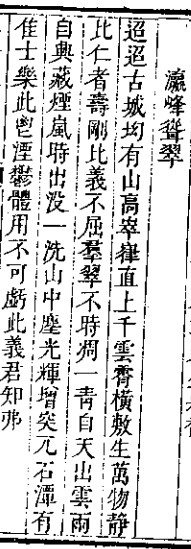 瀛峰聳翠
迢迢古城均有山高崒嵂直上千雲霄橫敷生萬物靜
比仁者壽剛比義不屈羣翠不時凋一青自天出雲雨
自興藏煙嵐時出没一洗山中塵光輝增突兀石潭有
佳士樂此鬯湮鬱體用不可虧此義君知弗